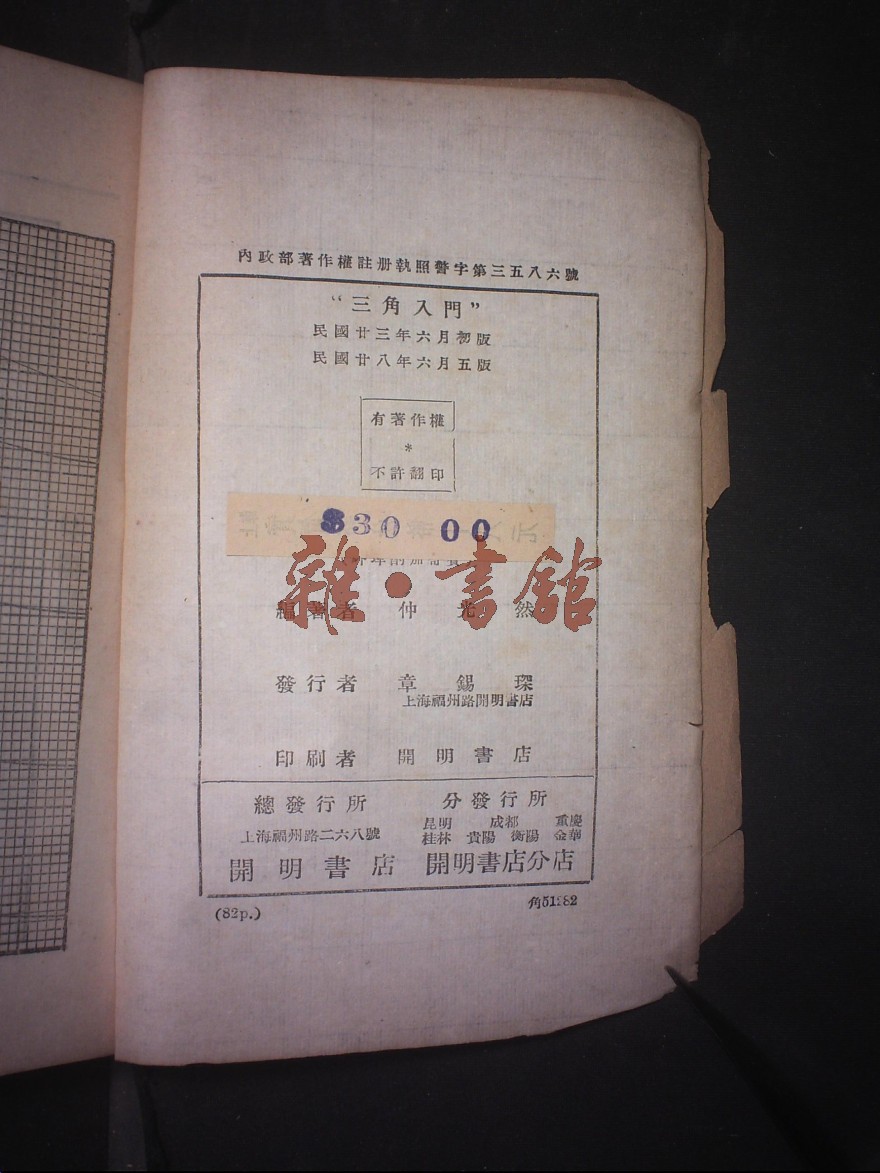 內政部著作權註册執照警字第三五八六號
“三角入門”
民國廿三年六月初版
民國廿八年六月五版
有著作權
*
不許翻印
$30 00
雜·書館
編著者 仲光然
發行者 章錫琛
上海福州路開明書店
印刷者 開明書店
總發行所
上海福州路二六八號
開明書店
分發行所
昆明 成都 重慶
桂林 貴陽 衡陽 金華
開明書店分店
(82p.)
角51282